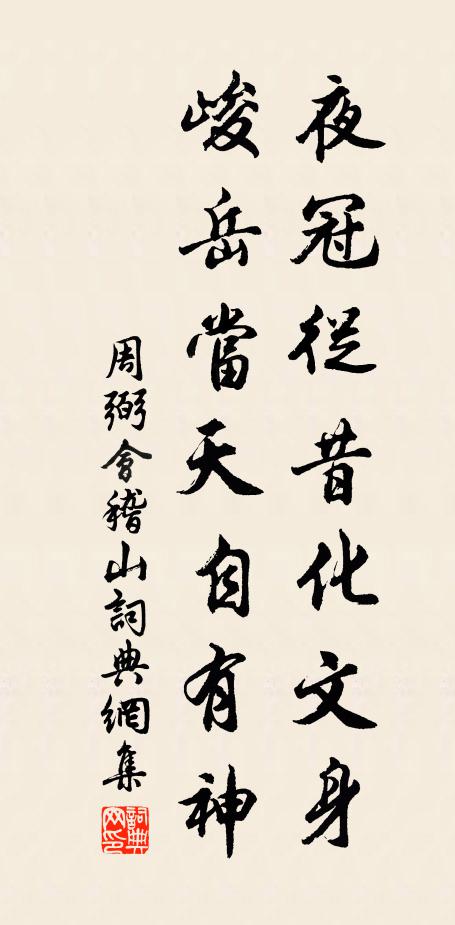 夜冠從昔化文身
峻岳當天自有神
周弼會稽山詞典網集
詞典網印